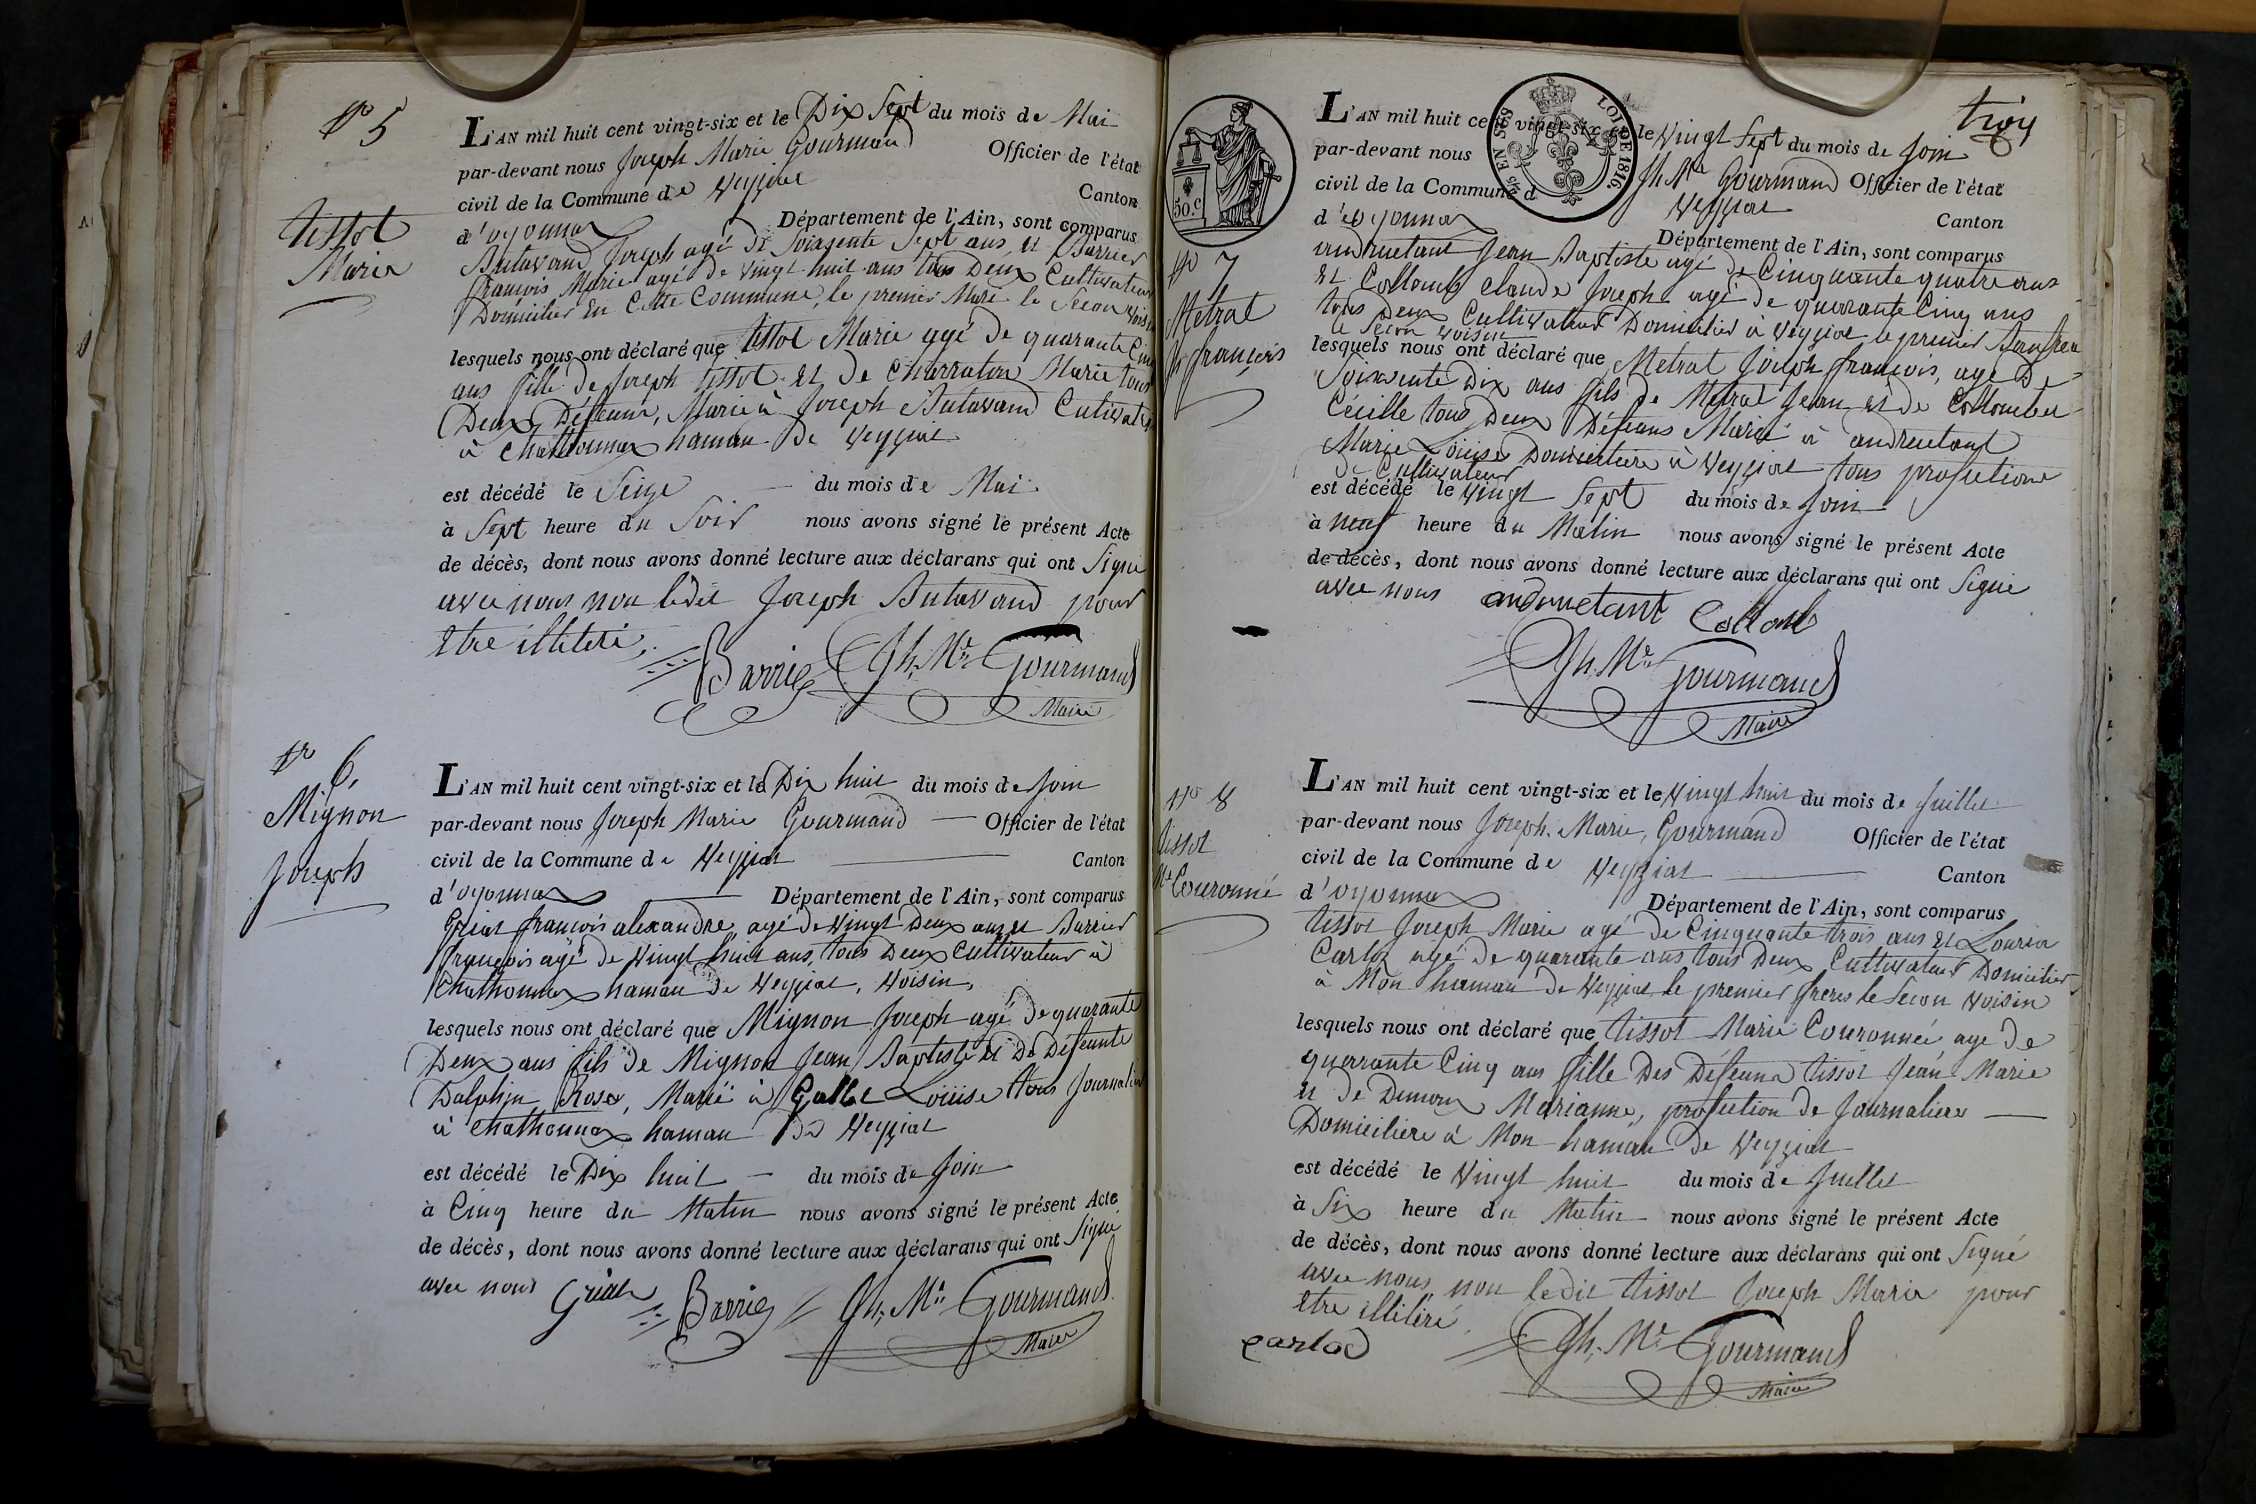 N° 5
Tissot
Marie
L'AN mil huit cent vingt-six et le Dix Sept du mois de Mai
par-devant nous Joseph Marie Gourmand Officier de l'état
civil de la Commune de Veyziat Canton
d'oyonnax Département de l'Ain, sont comparus
Butavand Joseph agé de Soixsente Sept ans, et Barrier
françois Marie agé de vingt huit ans tous Deux Cultivateur
Domicilier En Cette Commune, le premier Mari le Secon voisin
lesquels nous ont déclaré que tissot Marie agé de quarante Cinq
ans fille de Joseph tissot et de Charraton Marie tous
Deux Défeunt, Marié à Joseph Butavand Cutivateur
à Chatonnax hamau de Veyziat
est décédé le Seize du mois de Mai
à Sept heure du Soir nous avons signé le présent Acte
de décès, dont nous avons donné lecture aux déclarans qui ont Signé
avec nous non ledit Joseph Butavand pour
Etre illiteré,
Barrier Jh. Mie Gourmand
Maire
N° 6,
Mignon
Joseph
L'AN mil huit cent vingt-six et le Dix huit du mois de Join
par-devant nous Joseph Marie Gourmand Officier de l'état
civil de la Commune de Veyziat Canton
d'oyonnax Département de l'Ain, sont comparus
Griat françois alexandre agé de Vingt Deux ans et Barrier
françois agé de Vingt huit ans, tous Deux Cultivateur à
Chathonnax hamau de Veyziat, Voisin,
lesquels nous ont déclaré que Mignon Joseph agé de quarante
Deux ans fils de Mignon Jean Baptiste et De Défeunte
Dalphin Rose, Marié à Gallet Louiise tous Journalier
à Chathonnax hamau de Veyziat
est décédé le Dix huit du mois de Join
à Cinq heure du Matin nous avons signé le présent Acte
de décès, dont nous avons donné lecture aux déclarans qui ont Signé
avec nous Griat Barrier Jh. Mie Gourmand
Maire
troy
245 EN SUS
LOI DE 1816.
50.c
N° 7
Metral
Jh françois
L'AN mil huit cent vingt-six et le Vingt Sept du mois de Join
par-devant nous Jh Mie Gourmand Officier de l'état
civil de la Commune d Veyziat Canton
d'oyonnax Département de l'Ain, sont comparus
andruetant Jean Baptiste agé de Cinquante quatre ans
Et Collomb Claude Joseph agé de quarante Cinq ans
tous Deux Cultivateur Domicilier à Veyziat le premier Beaufrere
le Secon voisin
lesquels nous ont déclaré que Metral Joseph françois, agé De
Soixsente Dix ans fils de Metral Jean et de Collombet
Cécille tous Deux Défeans Marié à andruetant
Marie Louiise Domiciliere à Veyziat tous profetions
de Cultivateur
est décédé le Vingt Sept du mois de Join
à neuf heure du Matin nous avons signé le présent Acte
de décès, dont nous avons donné lecture aux déclarans qui ont Signé
avec nous andruetant Collomb
Jh. Mie Gourmand
Maire
N° 8
Tissot
Mie Couronné
L'AN mil huit cent vingt-six et le Vingt huit du mois de Juillet
par-devant nous Joseph Marie Gourmand Officier de l'état
civil de la Commune de Veyziat Canton
d'oyonnax Département de l'Ain, sont comparus
tissot Joseph Marie agé de Cinquante trois ans et
Carloz agé de quarante ans tous Deux Cultivateur Domicilier
à Mon hamau de Veyziat le premier freres le Secon voisin
lesquels nous ont déclaré que tissot Marie Couronnée age de
quarrante Cinq ans fille Des Défeuna tissot Jean Marie
et de Dumoux Marianne, profection de Journaliere
Domiciliere à Mon hamau de Veyziat
est décédé le Vingt huit du mois de Juillet
à Six heure du Matin nous avons signé le présent Acte
de décès, dont nous avons donné lecture aux déclarans qui ont Signé
avec nous non ledit tissot Joseph Marie pour
Etre illiteré.
carloz Jh. Mie Gourmand
Maire